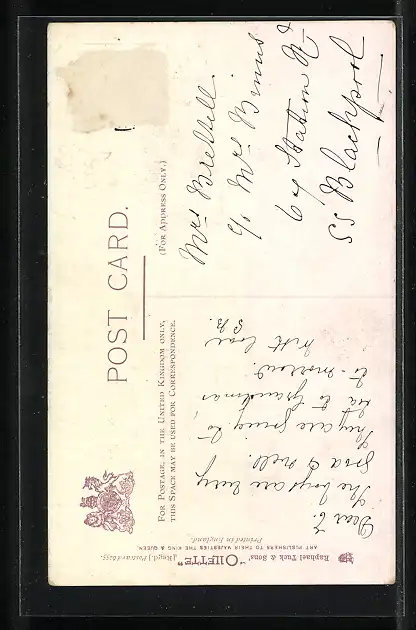 POST CARD.
FOR POSTAGE, IN THE UNITED KINGDOM ONLY,
THIS SPACE MAY BE USED FOR CORRESPONDENCE.
(FOR ADDRESS ONLY.)
Dear E.
The boys are very
good & well.
They are going to
tea to Grandmas
to-morrow.
With love
S.B.
Mrs Brettell.
c/o Mrs Binns
64 Station Rd
SS Blackpool
Raphael Tuck & Sons'
"OILETTE"
[Regd.] Postcard
ART PUBLISHERS TO THEIR MAJESTIES THE KING & QUEEN.
Printed in England.